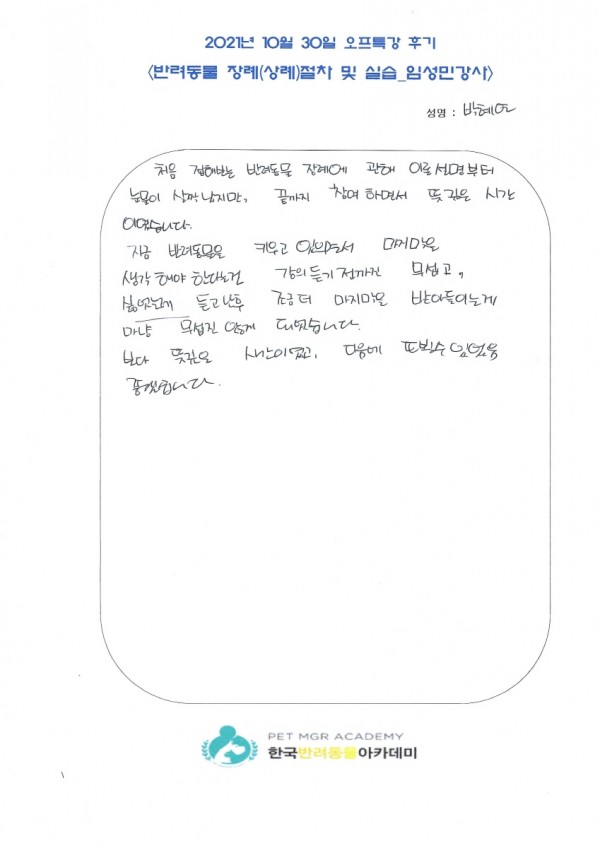 2021년 10월 30일 오프특강 후기
<반려동물 장례(상례)절차 및 실습_임성민강사>
성명 : 박혜연
처음 접해보는 반려동물 장례에 관해 이론설명부터
눈물이 살짝 났지만, 끝까지 참여하면서 뜻깊은 시간
이였습니다.
지금 반려동물을 키우고 있으면서 마지막을
생각해야 한다는건 강의듣기 전까진 무섭고,
싫었는데 듣고난후 조금 더 마지막을 받아들이는게
마냥 무섭진 않게 되었습니다.
보다 뜻깊은 시간이였고, 다음에 또 받을수 있었음
좋겠습니다.
PET MGR ACADEMY
한국반려동물아카데미